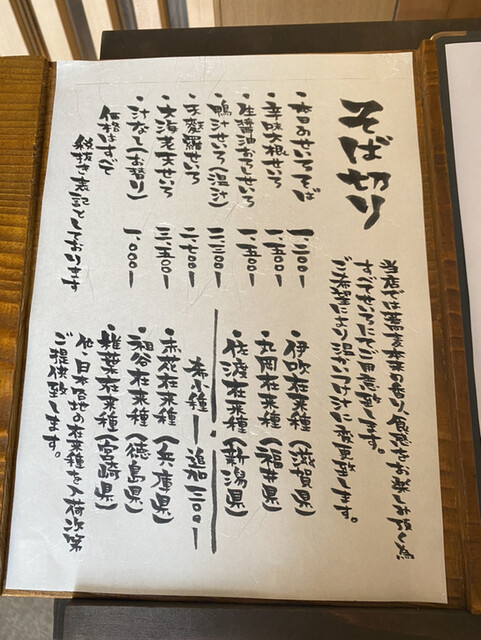 そば切り
当店では蕎麦本来の香り、食感をお楽しみ頂く為
すべてせいろにてご用意致します。
ご希望により温かいつけ汁に変更致します。
・本日のせいろそば
・辛味大根せいろ 一、四〇〇ー
・生醤油おろしせいろ 一、四〇〇ー
・鴨汁せいろ(温汁)
・天麩羅せいろ
・大海老天せいろ
・汁なし(お替り) 一、〇〇〇ー
価格はすべて
税抜き表記としております
・伊吹在来種(滋賀県)
・丸岡在来種(福井県)
・佐渡在来種(新潟県)
・赤花在来種(兵庫県)
・祖谷在来種(徳島県)
・椎葉在来種(宮崎県)
他、日本各地の在来種を入荷次第
ご提供致します。